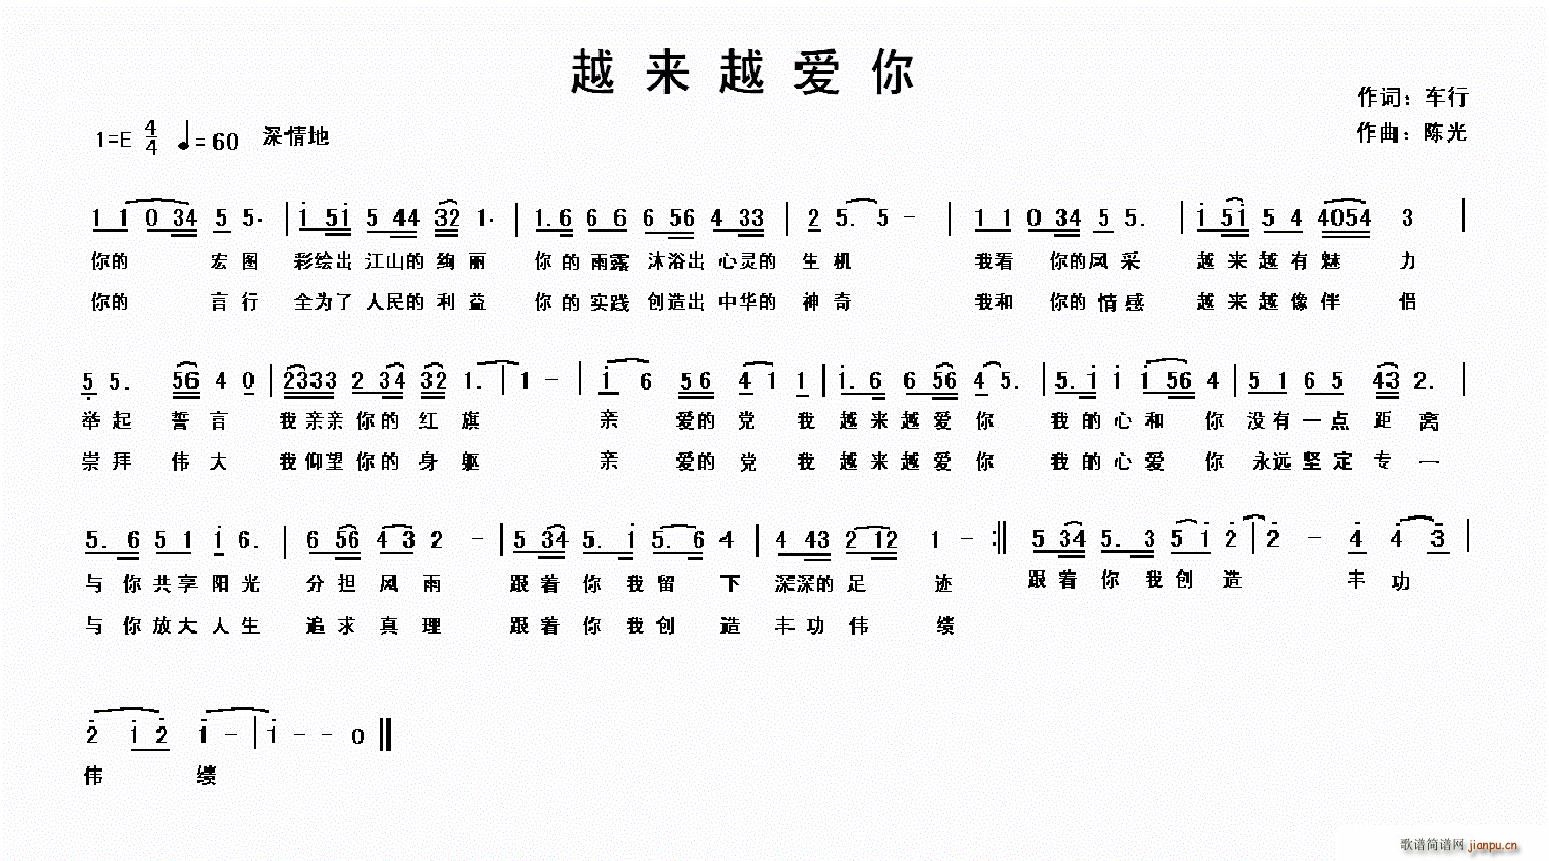 越来越爱你
作词：车行
作曲：陈光
1=E 4/4 ♩=60 深情地
1 1 0 34 5 5· | i 5i 5 44 32 1· | 1.6 6 6 6 56 4 33 | 2 5. 5 - | 1 1 0 34 5 5. | i 5i 5 4 4054 3 |
你的 宏图 彩绘出江山的绚丽 你的雨露沐浴出心灵的生机 我看你的风采 越来越有魅力
你的 言行 全为了人民的利益 你的实践创造出中华的神奇 我和你的情感 越来越像伴侣
5 5. 56 4 0 | 2333 2 34 32 1. | 1 - | i 6 56 4 1 1 | i.6 6 56 4 5. | 5.i i i 56 4 | 5 1 6 5 43 2. |
举起誓言 我亲亲你的红旗 亲爱的党我越来越爱你 我的心和你没有一点距离
崇拜伟大 我仰望你的身躯 亲爱的党我越来越爱你 我的心爱你永远坚定专一
5. 6 5 1 i 6. | 6 56 4 3 2 - | 5 34 5. i 5. 6 4 | 4 43 2 12 1 - :‖ 5 34 5. 3 5 i 2 | 2 - 4 4 3 |
与你共享阳光 分担风雨 跟着你我留下深深的足迹 跟着你我创造丰功
与你放大人生 追求真理 跟着你我创造丰功伟绩
2 i 2 i - | i - - 0 ‖
伟绩
歌谱简谱网 jianpu.cn